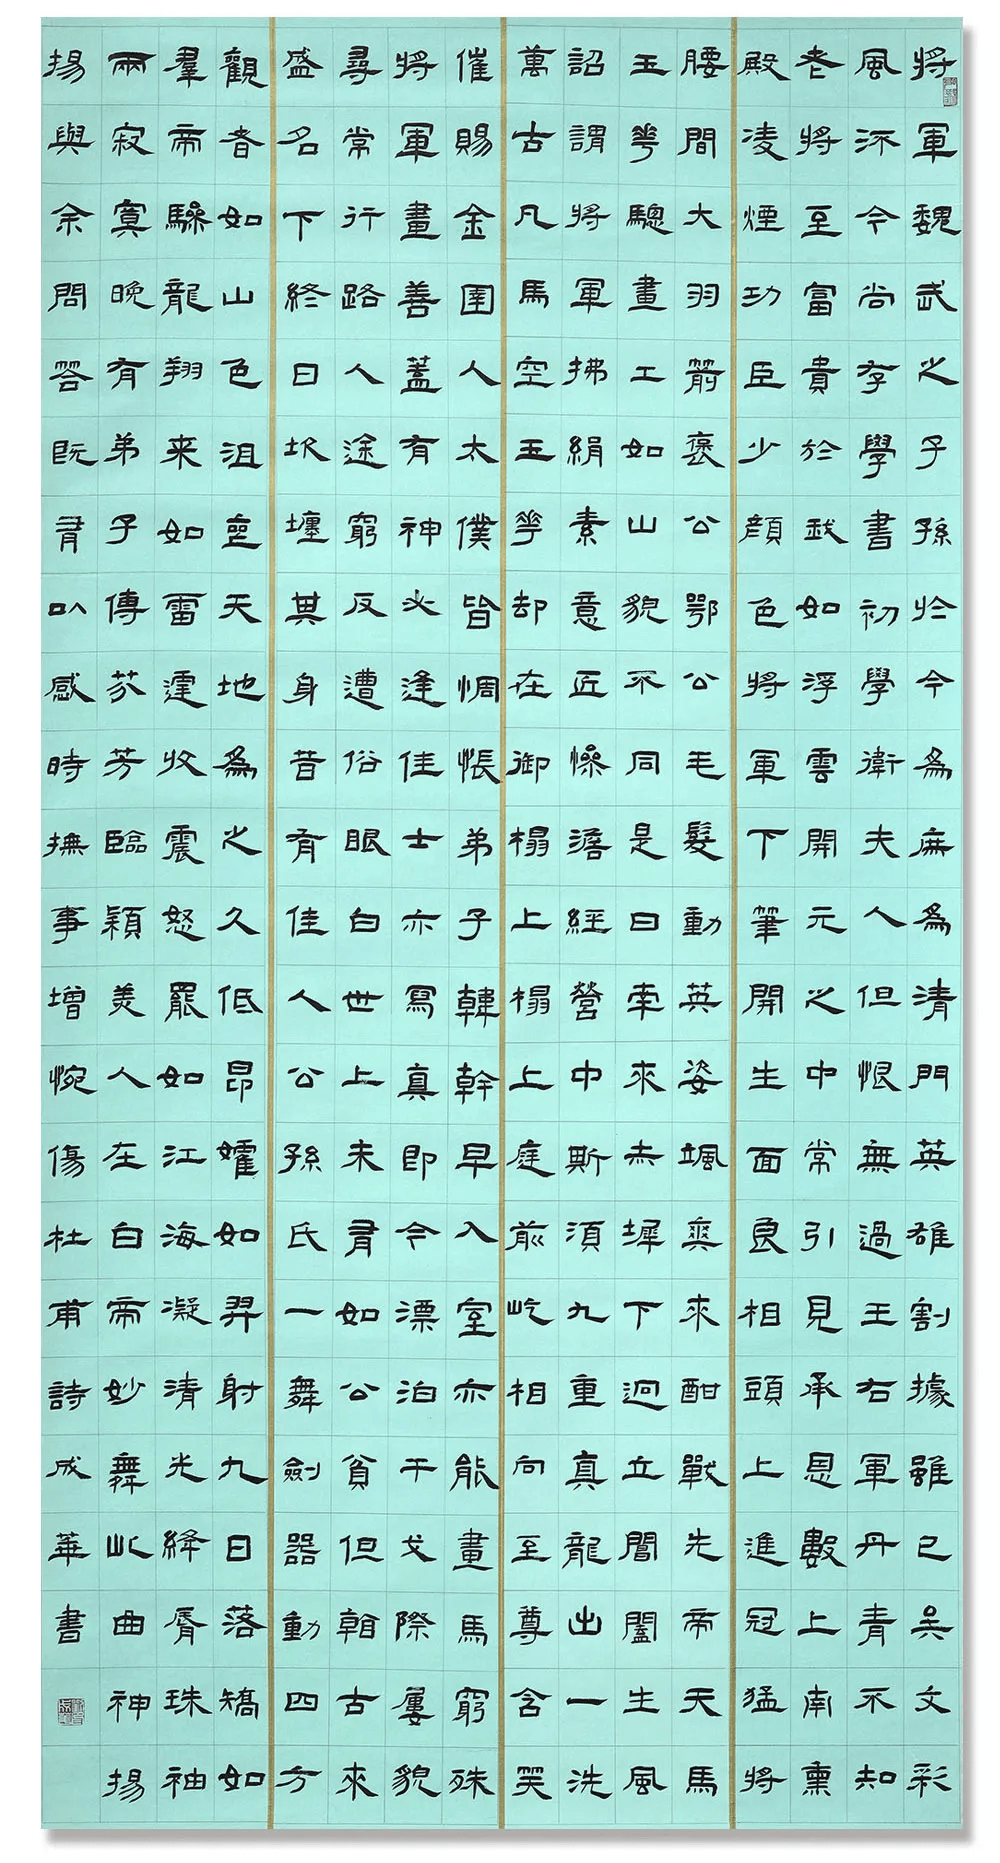 將軍魏武之子孫於今為庶為清門英雄割據雖已矣文彩
風流今尚存學書初學衛夫人但恨無過王右軍丹青不知
老將至富貴於我如浮雲開元之中常引見承恩數上南熏
殿凌煙功臣少顏色將軍下筆開生面良相頭上進冠猛將
腰間大羽箭褒公鄂公毛髮動英姿颯爽來酣戰先帝天馬
玉花驄畫工如山貌不同是日牽來赤墀下迥立閶闔生風
詔謂將軍拂絹素意匠慘澹經營中斯須九重真龍出一洗
萬古凡馬空玉花却在御榻上榻上庭前屹相向至尊含笑
催賜金圉人太僕皆惆悵弟子韓幹早入室亦能畫馬窮殊
將軍畫善蓋有神必逢佳士亦寫真即今漂泊干戈際屢貌
尋常行路人途窮反遭俗眼白世上未有如公貧但看古來
盛名下終日坎壈其身昔有佳人公孫氏一舞劍器動四方
觀者如山色沮喪天地為之久低昂㸌如羿射九日落矯如
羣帝驂龍翔来如雷霆收震怒罷如江海凝清光絳脣珠袖
兩寂寞晚有弟子傳芬芳臨潁美人在白帝妙舞此曲神揚
揚與余問答既有以感時撫事增惋傷杜甫詩成華書